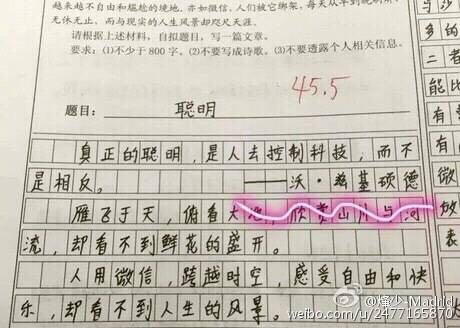 越来越不自由和尴尬的境地。亦如微信,人们被它绑架,每天从早到晚刷屏,
无休无止,而与现实的人生风景却咫尺天涯。
请根据上述材料,自拟题目,写一篇文章。
要求:(1)不少于800字。(2)不要写成诗歌。(3)不要透露个人相关信息。
45.5
题目:聪明
真正的聪明,是人去控制科技,而不
是相反。
——沃·兹基硕德
雁飞于天,俯看大地,欣赏山川与河
流,却看不到鲜花的盛开。
人用微信,跨越时空,感受自由和快
乐,却看不到人生的风景。
与沙
多的
能比
有
有
微
放
表
@烽少-Madrid
weibo.com/u/2477165870